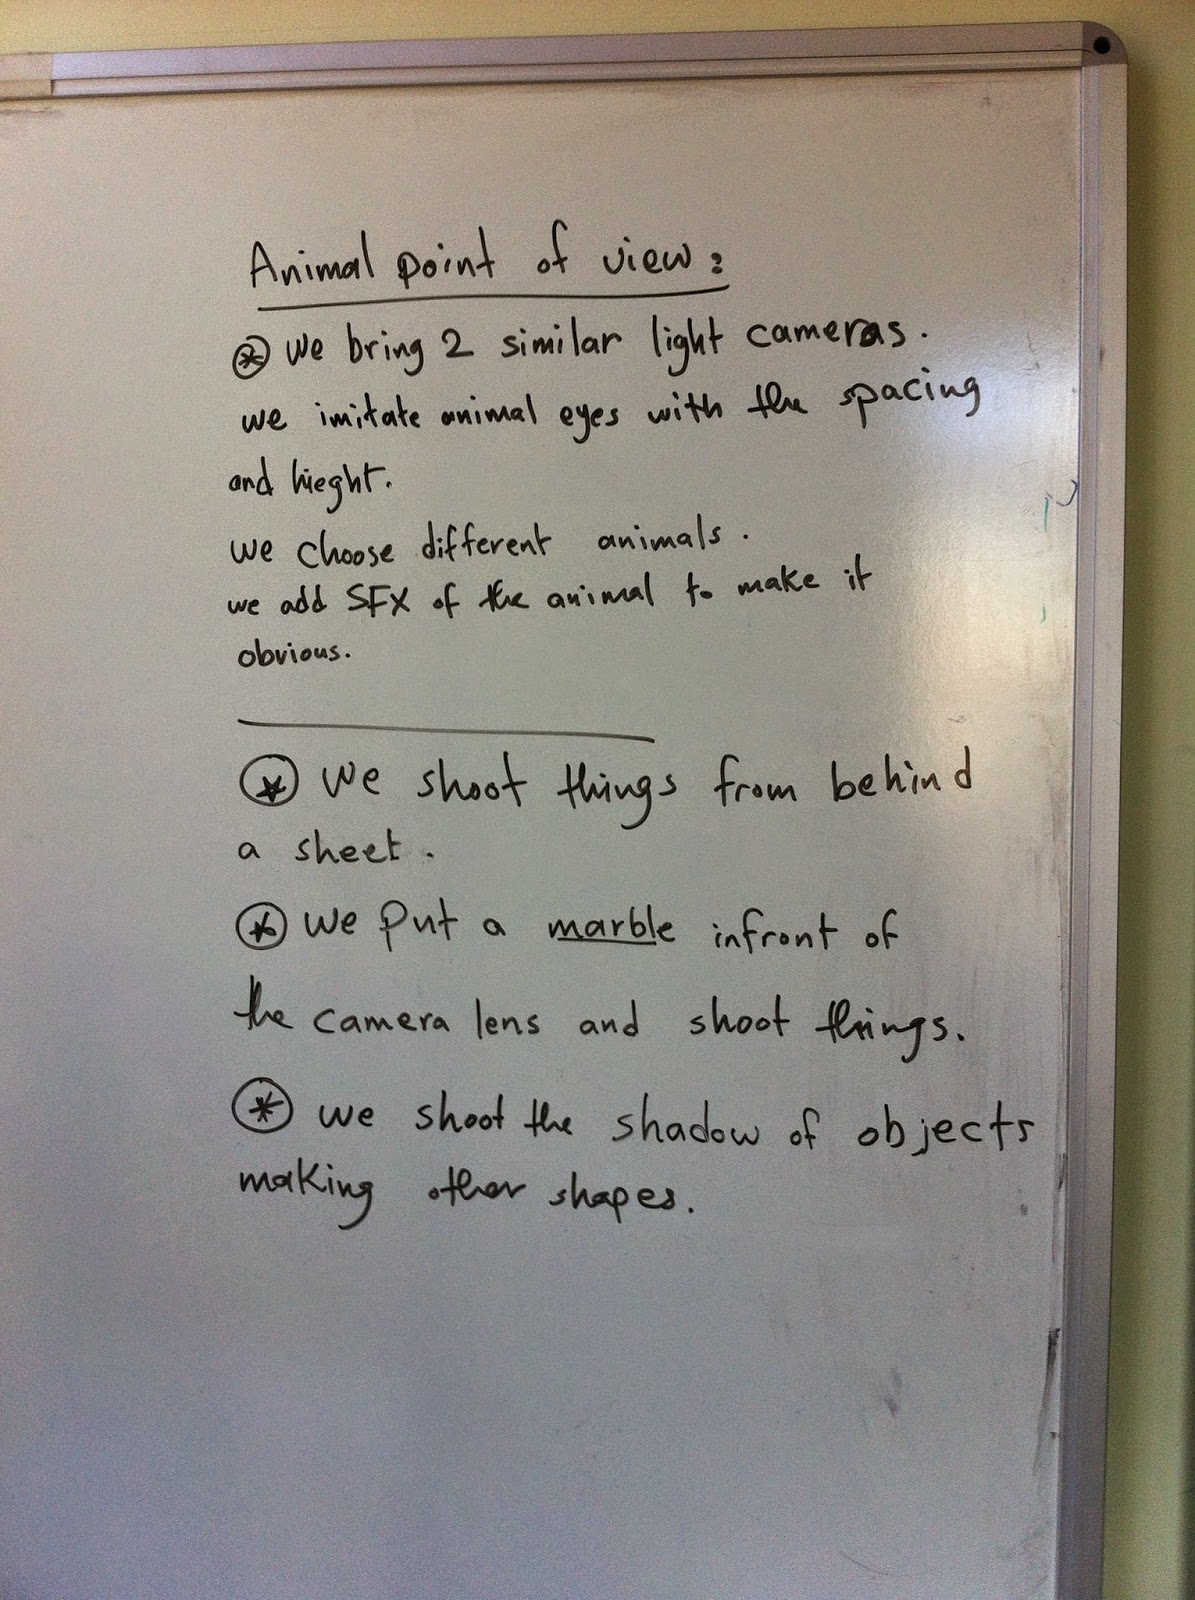 Animal point of view :
⊛ We bring 2 similar light cameras.
we imitate animal eyes with the spacing
and hieght.
We choose different animals.
we add SFX of the animal to make it
obvious.
⊛ We shoot things from behind
a sheet.
⊛ We put a marble infront of
the camera lens and shoot things.
⊛ we shoot the shadow of objects
making other shapes.